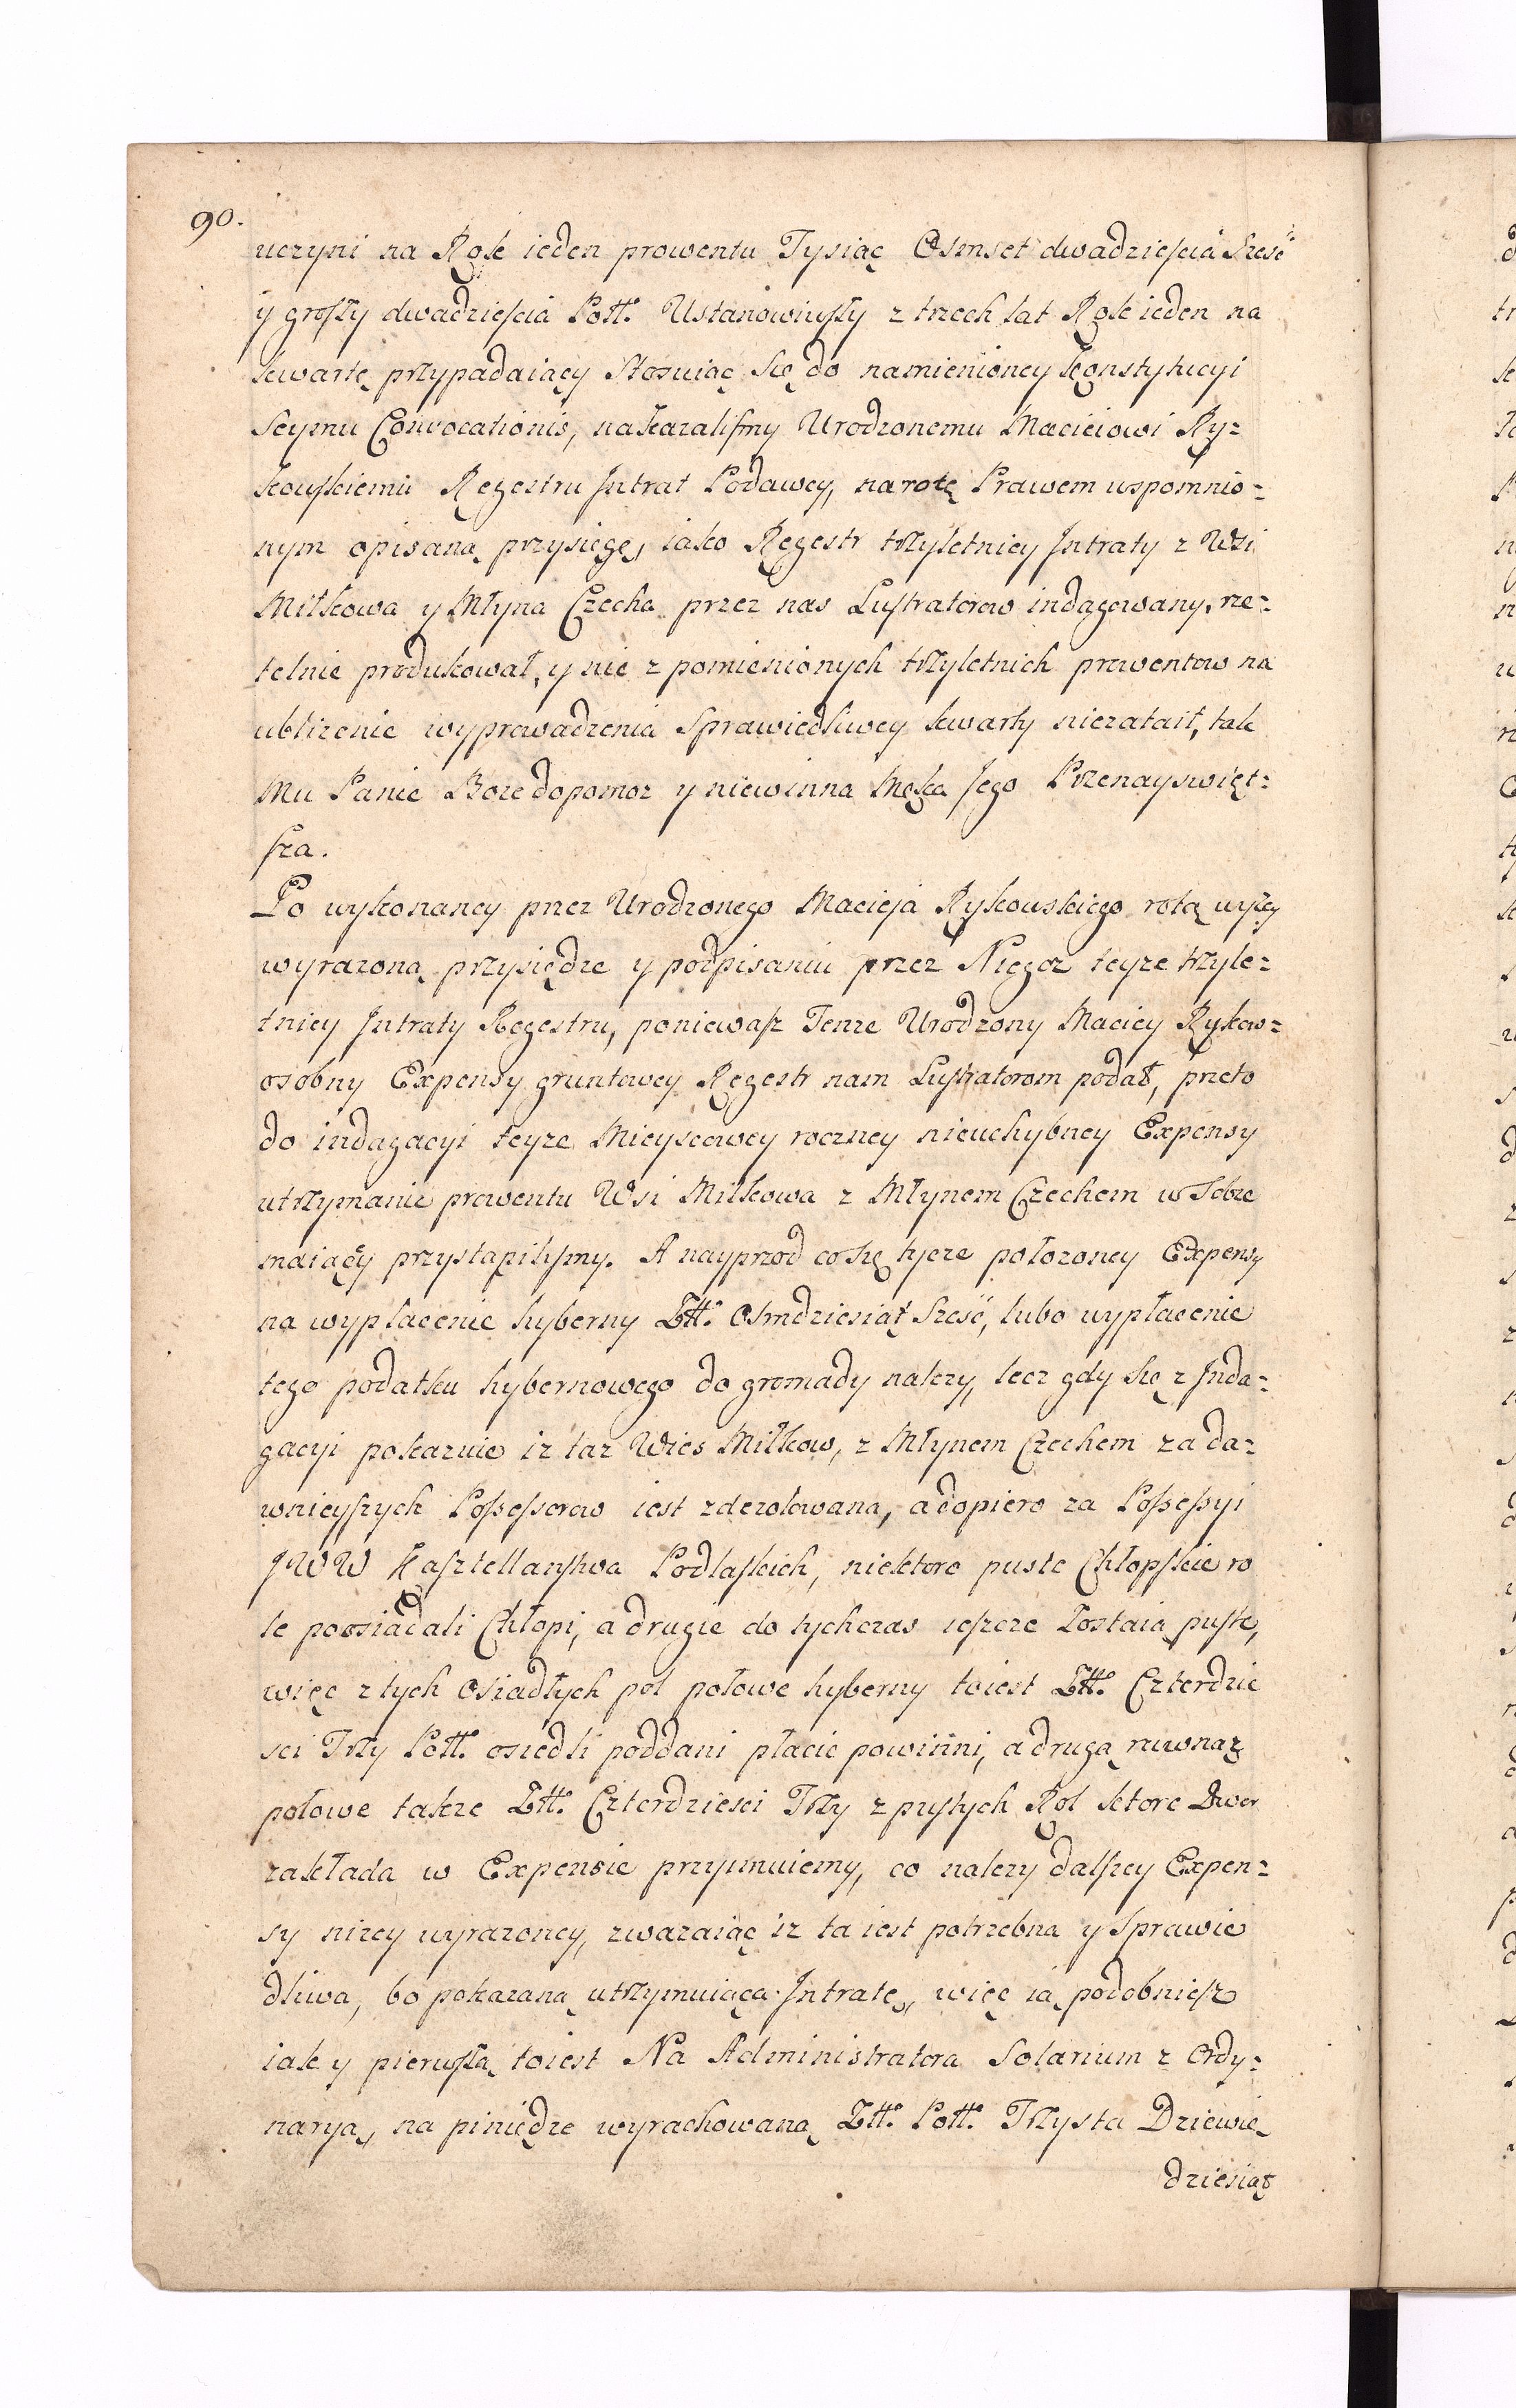 90.
uczyni na Rok ieden prowentu Tysiąc Osmset dwadzieścia Sześć
y groszy dwadzieścia Poll. Ustanowiwszy z trzech lat Rok ieden na
kwartę przypadaiący Stosuiąc Się do namienioney Konstytucyi
Seymu Convocationis, nakazaliśmy Urodzonemu Macieiowi Ry=
kowskiemu Regestru Intrat Podawcy, na rotę Prawem wspomnio=
nym opisaną przysięgę, iako Regestr trzyletniey Intraty z Wsi
Miłkowa y Młyna Czecha przez nas Lustratorow indagowany, rze=
telnie produkował, y nic z pomienionych trzyletnich prowentow na
ubliżenie wyprowadzenia Sprawiedliwey kwarty niezataił, tak
Mu Panie Boze dopomoz y niewinna Męka Jego Przenayswięt=
sza.
Po wykonaney przez Urodzonego Macieja Rykowskiego rotą wyzey
wyrazoną przysiędze y podpisaniu przez Niegoz teyze trzyle=
tniey Intraty Regestru, poniewasz Tenze Urodzony Maciey Rykow=
osobny Expensy gruntowey Regestr nam Lustratorom podał, przeto
do indagacyi teyze Mieyscowey roczney nieuchybney Expensy
utrzymanie prowentu Wsi Miłkowa z Młynem Czechem w Sobie
maiący przystąpiliśmy. A nayprzod co Się tycze połozoney Expensy
na wypłacenie hyberny Zll. Osmdziesiąt Sześć, lubo wypłacenie
tego podatku hybernowego do gromady nalezy, lecz gdy Się z Inda=
gacyi pokazuie iz taz Wies Miłkow, z Młynem Czechem za da=
wnieyszych Possessorow iest zdezolowana, a dopiero za Possessyi
JWW Kasztellanstwa Podlaskich, niektore puste Chłopskie ro
le poosiadali Chłopi, a drugie do tychczas ieszcze Zostaią puste,
więc z tych Osiadłych pol połowe hyberny toiest Zll. Czterdzie
sci Trzy Poll. osiedli poddani płacic powinni, a drugą rawnaz
połowe takze Zll. Czterdziesci Trzy z pustych Rol ktore Dwor
zakłada w Expensie przyimuiemy, co nalezy dalszey Expen=
sy nizey wyrazoney, zwazaiąc iz ta iest potrzebna y Sprawie
dliwa, bo pokazaną utrzymuiąca Intratę, więc ią podobniesz
iak y pierwszą toiest Na Administratora Solarium z Ordy=
naryą, na piniędze wyrachowaną Zll. Poll. Trzysta Dziewię
dziesiąt